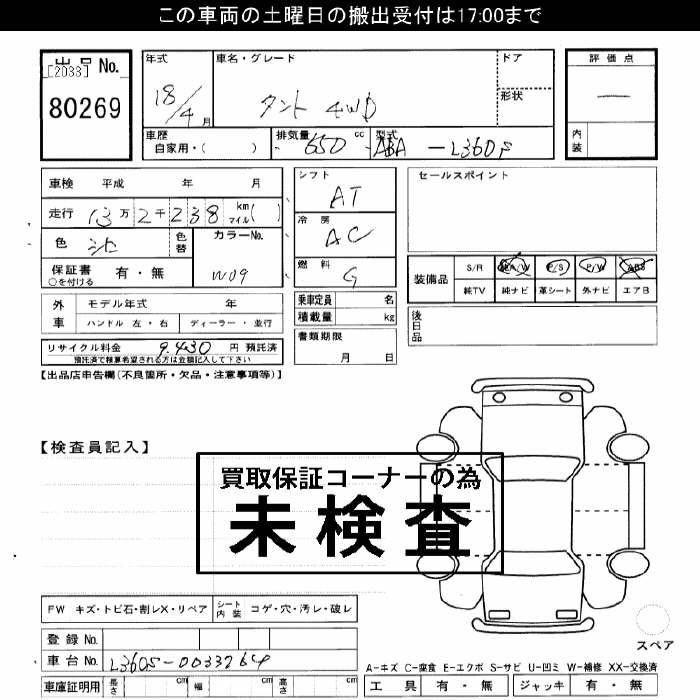 この車両の土曜日の搬出受付は17:00まで
出品 No.
[2033]
80269
年式
18/4月
車名・グレード
タント 4WD
ドア
形状
評価点
内装
車歴
自家用・(　　)
排気量
650 cc
型式
ABA-L360S
車検 平成 年 月
走行 13万2千238 km マイル( )
色
色替
カラーNo.
W09
保証書 有・無
○を付ける
シフト
AT
冷房
AC
燃料
G
セールスポイント
装備品
S/R 純A/W P/S P/W ABS
純TV 純ナビ 革シート 外ナビ エアB
外車
モデル年式 年
ハンドル 左・右 ディーラー・並行
乗車定員 名
積載量 kg
後日品
リサイクル料金 9,430 円 預託済
預託済で積算希望される方は金額記入して下さい
書類期限
月 日
【出品店申告欄(不良箇所・欠品・注意事項等)】
【検査員記入】
買取保証コーナーの為
未検査
FW キズ・トビ石・割レX・リペア
シート内装 コゲ・穴・汚レ・破レ
登録No.
車台No. L360S-0033264
スペア
A-キズ C-腐食 E-エクボ S-サビ U-凹ミ W-補修 XX-交換済
車庫証明用 長さ cm 幅 cm 高さ cm
工具 有・無 ジャッキ 有・無